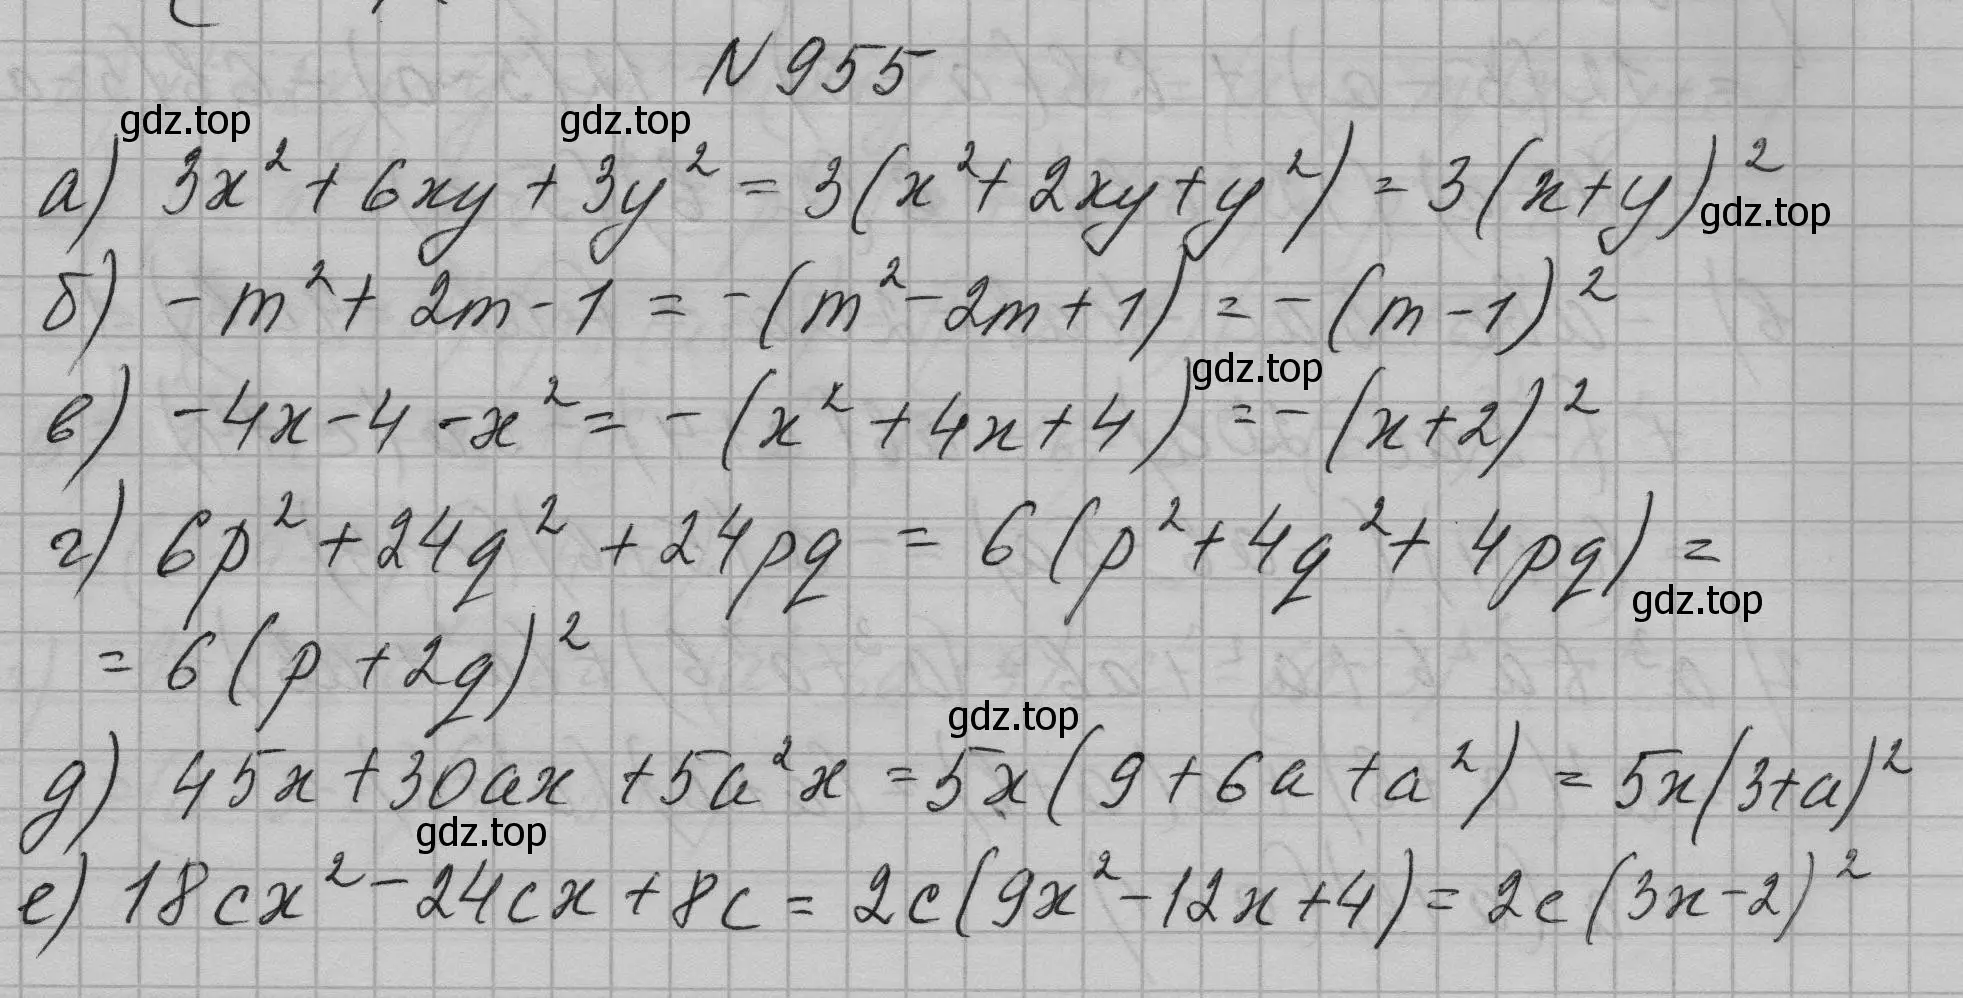 N 955
gdz.top gdz.top
а) 3x² + 6xy + 3y² = 3(x² + 2xy + y²) = 3(x + y)²
gdz.top
б) - m² + 2m - 1 = - (m² - 2m + 1) = - (m - 1)²
gdz.top
в) - 4x - 4 - x² = - (x² + 4x + 4) = - (x + 2)²
г) 6p² + 24q² + 24pq = 6(p² + 4q² + 4pq) =
gdz.top
= 6(p + 2q)²
gdz.top
д) 45x + 30ax + 5a²x = 5x(9 + 6a + a²) = 5x(3 + a)²
gdz.top
е) 18cx² - 24cx + 8c = 2c(9x² - 12x + 4) = 2c(3x - 2)²